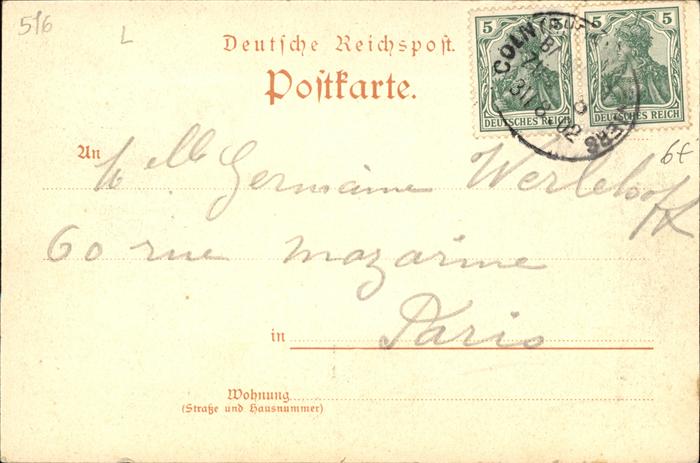 516
L
Deutsche Reichspost.
Postkarte.
5
5
DEUTSCHES REICH
DEUTSCHES REICH
COLN
VIERS
31 8 02
6f
An Mlle Germaine Werlehoff
60 rue Mazarine
in Paris
Wohnung
(Straße und Hausnummer)